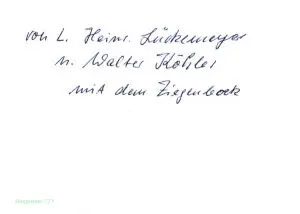 von L. Heinr. Lückemeyer
u. Walter Kößler
mit dem Ziegenbock